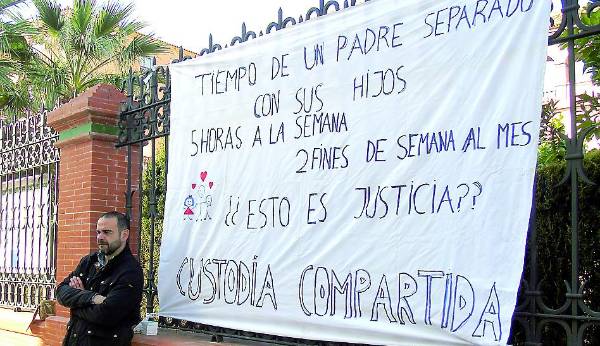 TIEMPO DE UN PADRE SEPARADO
CON SUS HIJOS
5 HORAS A LA SEMANA
2 FINES DE SEMANA AL MES
¿¿ESTO ES JUSTICIA??
CUSTODÍA COMPARTIDA